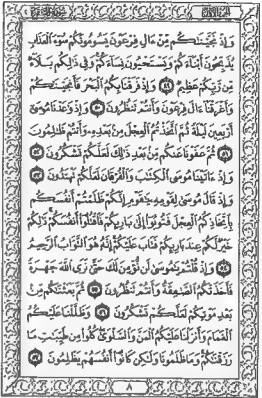 وَإِذْ نَجَّيْنَاكُم مِّنْ ءَالِ فِرْعَوْنَ يَسُومُونَكُمْ سُوٓءَ ٱلْعَذَابِ
يُذَبِّحُونَ أَبْنَآءَكُمْ وَيَسْتَحْيُونَ نِسَآءَكُمْ وَفِى ذَٰلِكُم بَلَآءٌ
مِّن رَّبِّكُمْ عَظِيمٌ ٤٩ وَإِذْ فَرَقْنَا بِكُمُ ٱلْبَحْرَ فَأَنجَيْنَٰكُمْ
وَأَغْرَقْنَآ ءَالَ فِرْعَوْنَ وَأَنتُمْ تَنظُرُونَ ٥٠ وَإِذْ وَٰعَدْنَا مُوسَىٰٓ
أَرْبَعِينَ لَيْلَةً ثُمَّ ٱتَّخَذْتُمُ ٱلْعِجْلَ مِنۢ بَعْدِهِۦ وَأَنتُمْ ظَٰلِمُونَ
٥١ ثُمَّ عَفَوْنَا عَنكُم مِّنۢ بَعْدِ ذَٰلِكَ لَعَلَّكُمْ تَشْكُرُونَ ٥٢
وَإِذْ ءَاتَيْنَا مُوسَى ٱلْكِتَٰبَ وَٱلْفُرْقَانَ لَعَلَّكُمْ تَهْتَدُونَ ٥٣
وَإِذْ قَالَ مُوسَىٰ لِقَوْمِهِۦ يَٰقَوْمِ إِنَّكُمْ ظَلَمْتُمْ أَنفُسَكُم
بِٱتِّخَاذِكُمُ ٱلْعِجْلَ فَتُوبُوٓا۟ إِلَىٰ بَارِئِكُمْ فَٱقْتُلُوٓا۟ أَنفُسَكُمْ ذَٰلِكُمْ
خَيْرٌ لَّكُمْ عِندَ بَارِئِكُمْ فَتَابَ عَلَيْكُمْ إِنَّهُۥ هُوَ ٱلتَّوَّابُ ٱلرَّحِيمُ
٥٤ وَإِذْ قُلْتُمْ يَٰمُوسَىٰ لَن نُّؤْمِنَ لَكَ حَتَّىٰ نَرَى ٱللَّهَ جَهْرَةً
فَأَخَذَتْكُمُ ٱلصَّٰعِقَةُ وَأَنتُمْ تَنظُرُونَ ٥٥ ثُمَّ بَعَثْنَٰكُم مِّنۢ
بَعْدِ مَوْتِكُمْ لَعَلَّكُمْ تَشْكُرُونَ ٥٦ وَظَلَّلْنَا عَلَيْكُمُ
ٱلْغَمَامَ وَأَنزَلْنَا عَلَيْكُمُ ٱلْمَنَّ وَٱلسَّلْوَىٰ كُلُوا۟ مِن طَيِّبَٰتِ مَا
رَزَقْنَٰكُمْ وَمَا ظَلَمُونَا وَلَٰكِن كَانُوٓا۟ أَنفُسَهُمْ يَظْلِمُونَ ٥٧
٨